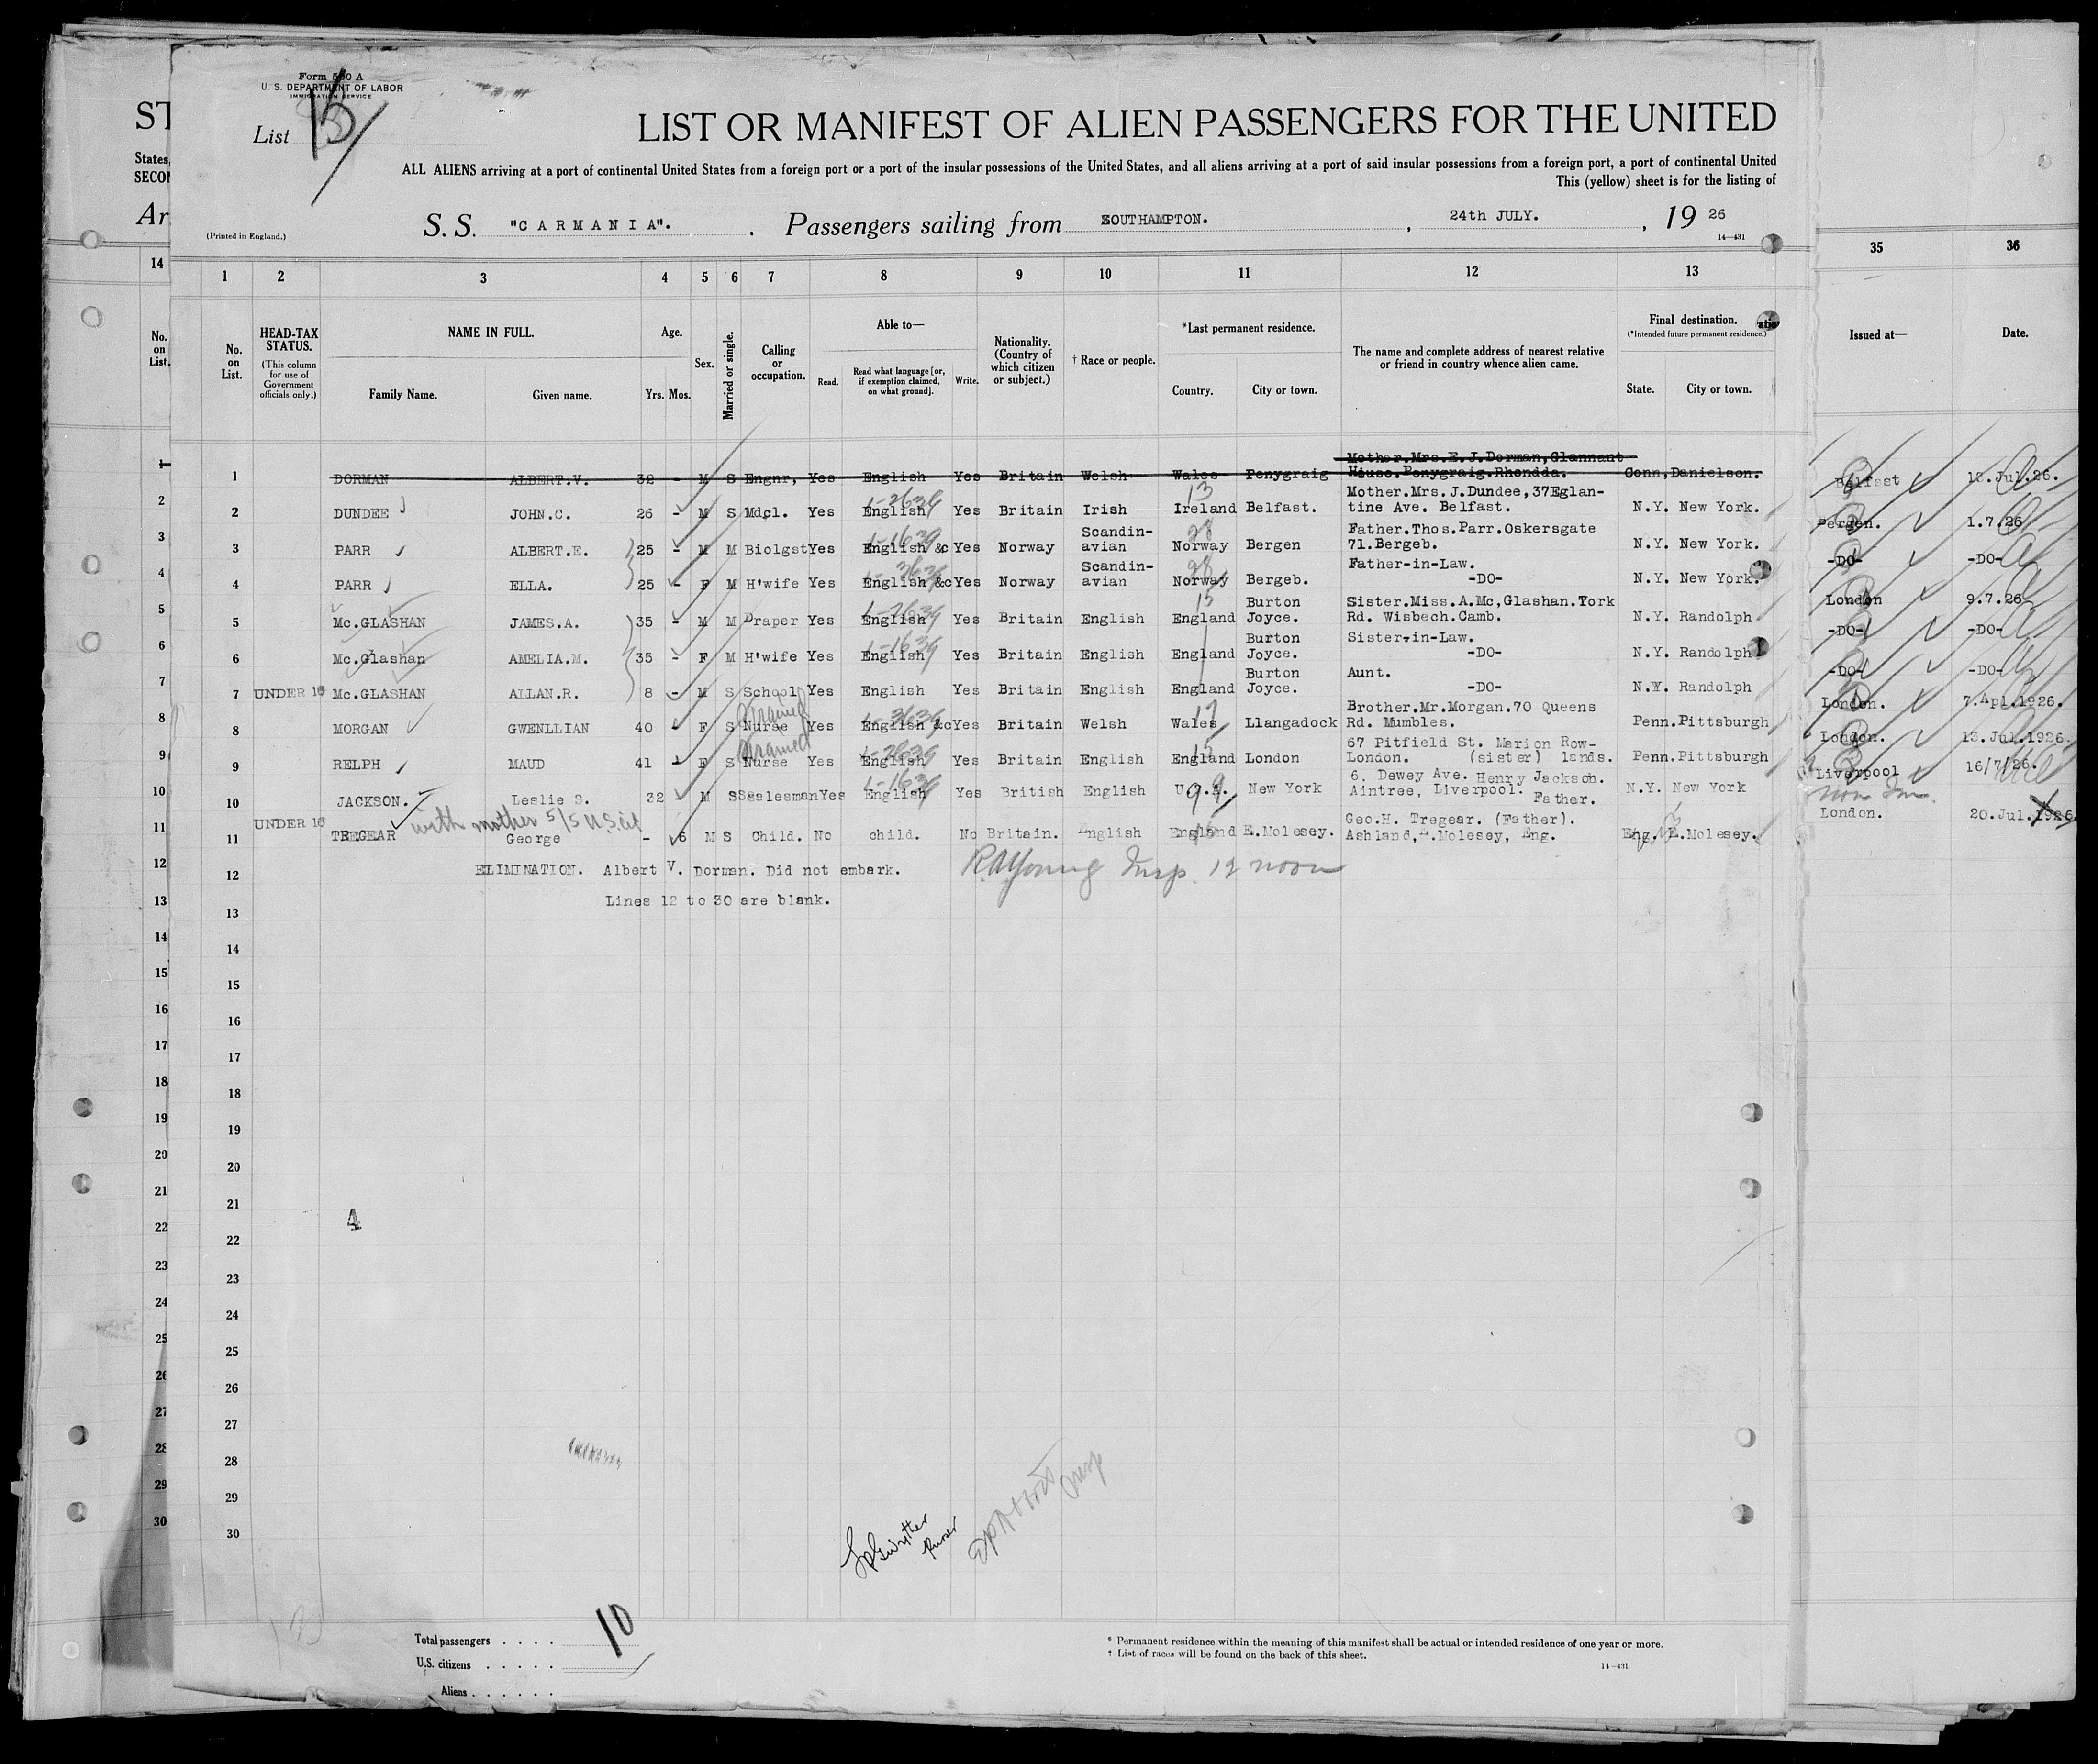 Form 500 A
U. S. DEPARTMENT OF LABOR
IMMIGRATION SERVICE
List
LIST OR MANIFEST OF ALIEN PASSENGERS FOR THE UNITED
ALL ALIENS arriving at a port of continental United States from a foreign port or a port of the insular possessions of the United States, and all aliens arriving at a port of said insular possessions from a foreign port, a port of continental United
This (yellow) sheet is for the listing of
(Printed in England.)
S. S. "CARMANIA". Passengers sailing from SOUTHAMPTON. , 24th JULY. , 19 26
14—431
1 2 3 4 5 6 7 8 9 10 11 12 13
No. on List.
HEAD-TAX STATUS.
(This column for use of Government officials only.)
NAME IN FULL.
Family Name. Given name.
Age.
Yrs. Mos.
Sex.
Married or single.
Calling or occupation.
Able to—
Read. Read what language [or, if exemption claimed, on what ground]. Write.
Nationality. (Country of which citizen or subject.)
† Race or people.
*Last permanent residence.
Country. City or town.
The name and complete address of nearest relative or friend in country whence alien came.
Final destination.
(*Intended future permanent residence.)
State. City or town.
1 DORMAN ALBERT.V. 32 - M S Engnr, Yes English Yes Britain Welsh Wales Penygraig Mother.Mrs.E.J.Dorman,Glannant House.Penygraig.Rhondda. Conn,Danielson.
2 DUNDEE JOHN.C. 26 - M S Mdcl. Yes English Yes Britain Irish Ireland Belfast. Mother.Mrs.J.Dundee,37Eglan-tine Ave. Belfast. N.Y. New York.
3 PARR ALBERT.E. 25 - M M Biolgst Yes English &c Yes Norway Scandin-avian Norway Bergen Father.Thos.Parr.Oskersgate 71.Bergeb. N.Y. New York.
4 PARR ELLA. 25 - F M H'wife Yes English &c Yes Norway Scandin-avian Norway Bergeb. Father-in-Law. -DO- N.Y. New York.
5 Mc.GLASHAN JAMES.A. 35 - M M Draper Yes English Yes Britain English England Burton Joyce. Sister.Miss.A.Mc,Glashan.York Rd. Wisbech.Camb. N.Y. Randolph
6 Mc.Glashan AMELIA.M. 35 - F M H'wife Yes English Yes Britain English England Burton Joyce. Sister-in-Law. -DO- N.Y. Randolph
7 UNDER 16 Mc.GLASHAN ALLAN.R. 8 - M S School Yes English Yes Britain English England Burton Joyce. Aunt. -DO- N.Y. Randolph
8 MORGAN GWENLLIAN 40 - F S Trained Nurse Yes English &c Yes Britain Welsh Wales Llangadock Brother.Mr.Morgan.70 Queens Rd. Mumbles. Penn.Pittsburgh
9 RELPH MAUD 41 - F S Trained Nurse Yes English Yes Britain English England London 67 Pitfield St. Marion Row-London. (sister) lands. Penn.Pittsburgh
10 JACKSON. Leslie S. 32 M S Saalesman Yes English Yes British English New York 6, Dewey Ave. Henry Jackson. Aintree, Liverpool. Father. N.Y. New York
with mother 5/5 U.S.Cit
11 UNDER 16 TREGEAR George - 6 M S Child. No child. No Britain. English England E.Molesey. Geo.H. Tregear. (Father). Ashland,E.Molesey, Eng. Eng. E.Molesey.
12 ELIMINATION. Albert V. Dorman. Did not embark.
R.A.Young Insp. 12 noon
Lines 12 to 30 are blank.
13
14
15
16
17
18
19
20
21
22
23
24
25
26
27
28
29
30
4
Purser
Insp
Total passengers . . . . 10
U.S. citizens . . . . .
Aliens . . . . . .
* Permanent residence within the meaning of this manifest shall be actual or intended residence of one year or more.
† List of races will be found on the back of this sheet.
14—431
ST
States,
SECON
Ar
14
No. on List.
1
2
3
4
5
6
7
8
9
10
11
12
13
14
15
16
17
18
19
20
21
22
23
24
25
26
27
28
29
30
35 36
Issued at— Date.
Belfast 13.Jul.26.
Bergen. 1.7.26
-DO- -DO-
London 9.7.26
-DO- -DO-
-DO- -DO-
London. 7.Apl.1926.
London. 13.Jul.1926.
Liverpool 16/7/26.
London. 20.Jul.1926